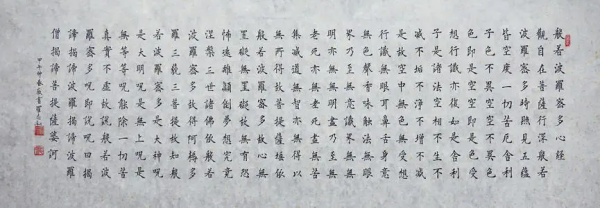 般若波羅蜜多心經
觀自在菩薩行深般若
波羅蜜多時照見五蘊
皆空度一切苦厄舍利
子色不異空空不異色
色即是空空即是色受
想行識亦復如是舍利
子是諸法空相不生不
滅不垢不淨不增不減
是故空中無色無受想
行識無眼耳鼻舌身意
無色聲香味觸法無眼
界乃至無意識界無無
明亦無無明盡乃至無
老死亦無老死盡無苦
集滅道無智亦無得以
無所得故菩提薩埵依
般若波羅蜜多故心無
罣礙無罣礙故無有恐
怖遠離顛倒夢想究竟
涅槃三世諸佛依般若
波羅蜜多故得阿耨多
羅三藐三菩提故知般
若波羅蜜多是大神呪
是大明呪是無上呪是
無等等呪能除一切苦
真實不虛故說般若波
羅蜜多呪即說呪曰揭
諦揭諦波羅揭諦波羅
僧揭諦菩提薩婆訶
甲午仲春